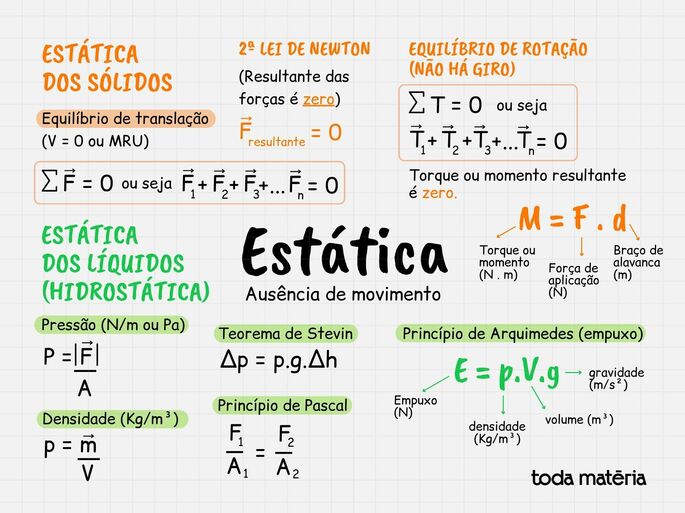 ESTÁTICA
DOS SÓLIDOS
Equilíbrio de translação
(V = 0 ou MRU)
2ª LEI DE NEWTON
(Resultante das
forças é zero)
F⃗resultante = 0
∑F⃗ = 0 ou seja F⃗₁+ F⃗₂+ F⃗₃+... F⃗n = 0
EQUILÍBRIO DE ROTAÇÃO
(NÃO HÁ GIRO)
∑T = 0 ou seja
T⃗₁+ T⃗₂+ T⃗₃+...T⃗n = 0
Torque ou momento resultante
é zero.
M = F . d
Torque ou
momento
(N . m)
Força de
aplicação
(N)
Braço de
alavanca
(m)
Estática
Ausência de movimento
ESTÁTICA
DOS LÍQUIDOS
(HIDROSTÁTICA)
Pressão (N/m ou Pa)
P = |F⃗|
A
Densidade (Kg/m³)
p = m⃗
V
Teorema de Stevin
Δp = p.g.Δh
Princípio de Pascal
F₁ = F₂
A₁ A₂
Princípio de Arquimedes (empuxo)
E = p.V.g
gravidade
(m/s²)
Empuxo
(N)
densidade
(Kg/m³)
volume (m³)
toda matéria